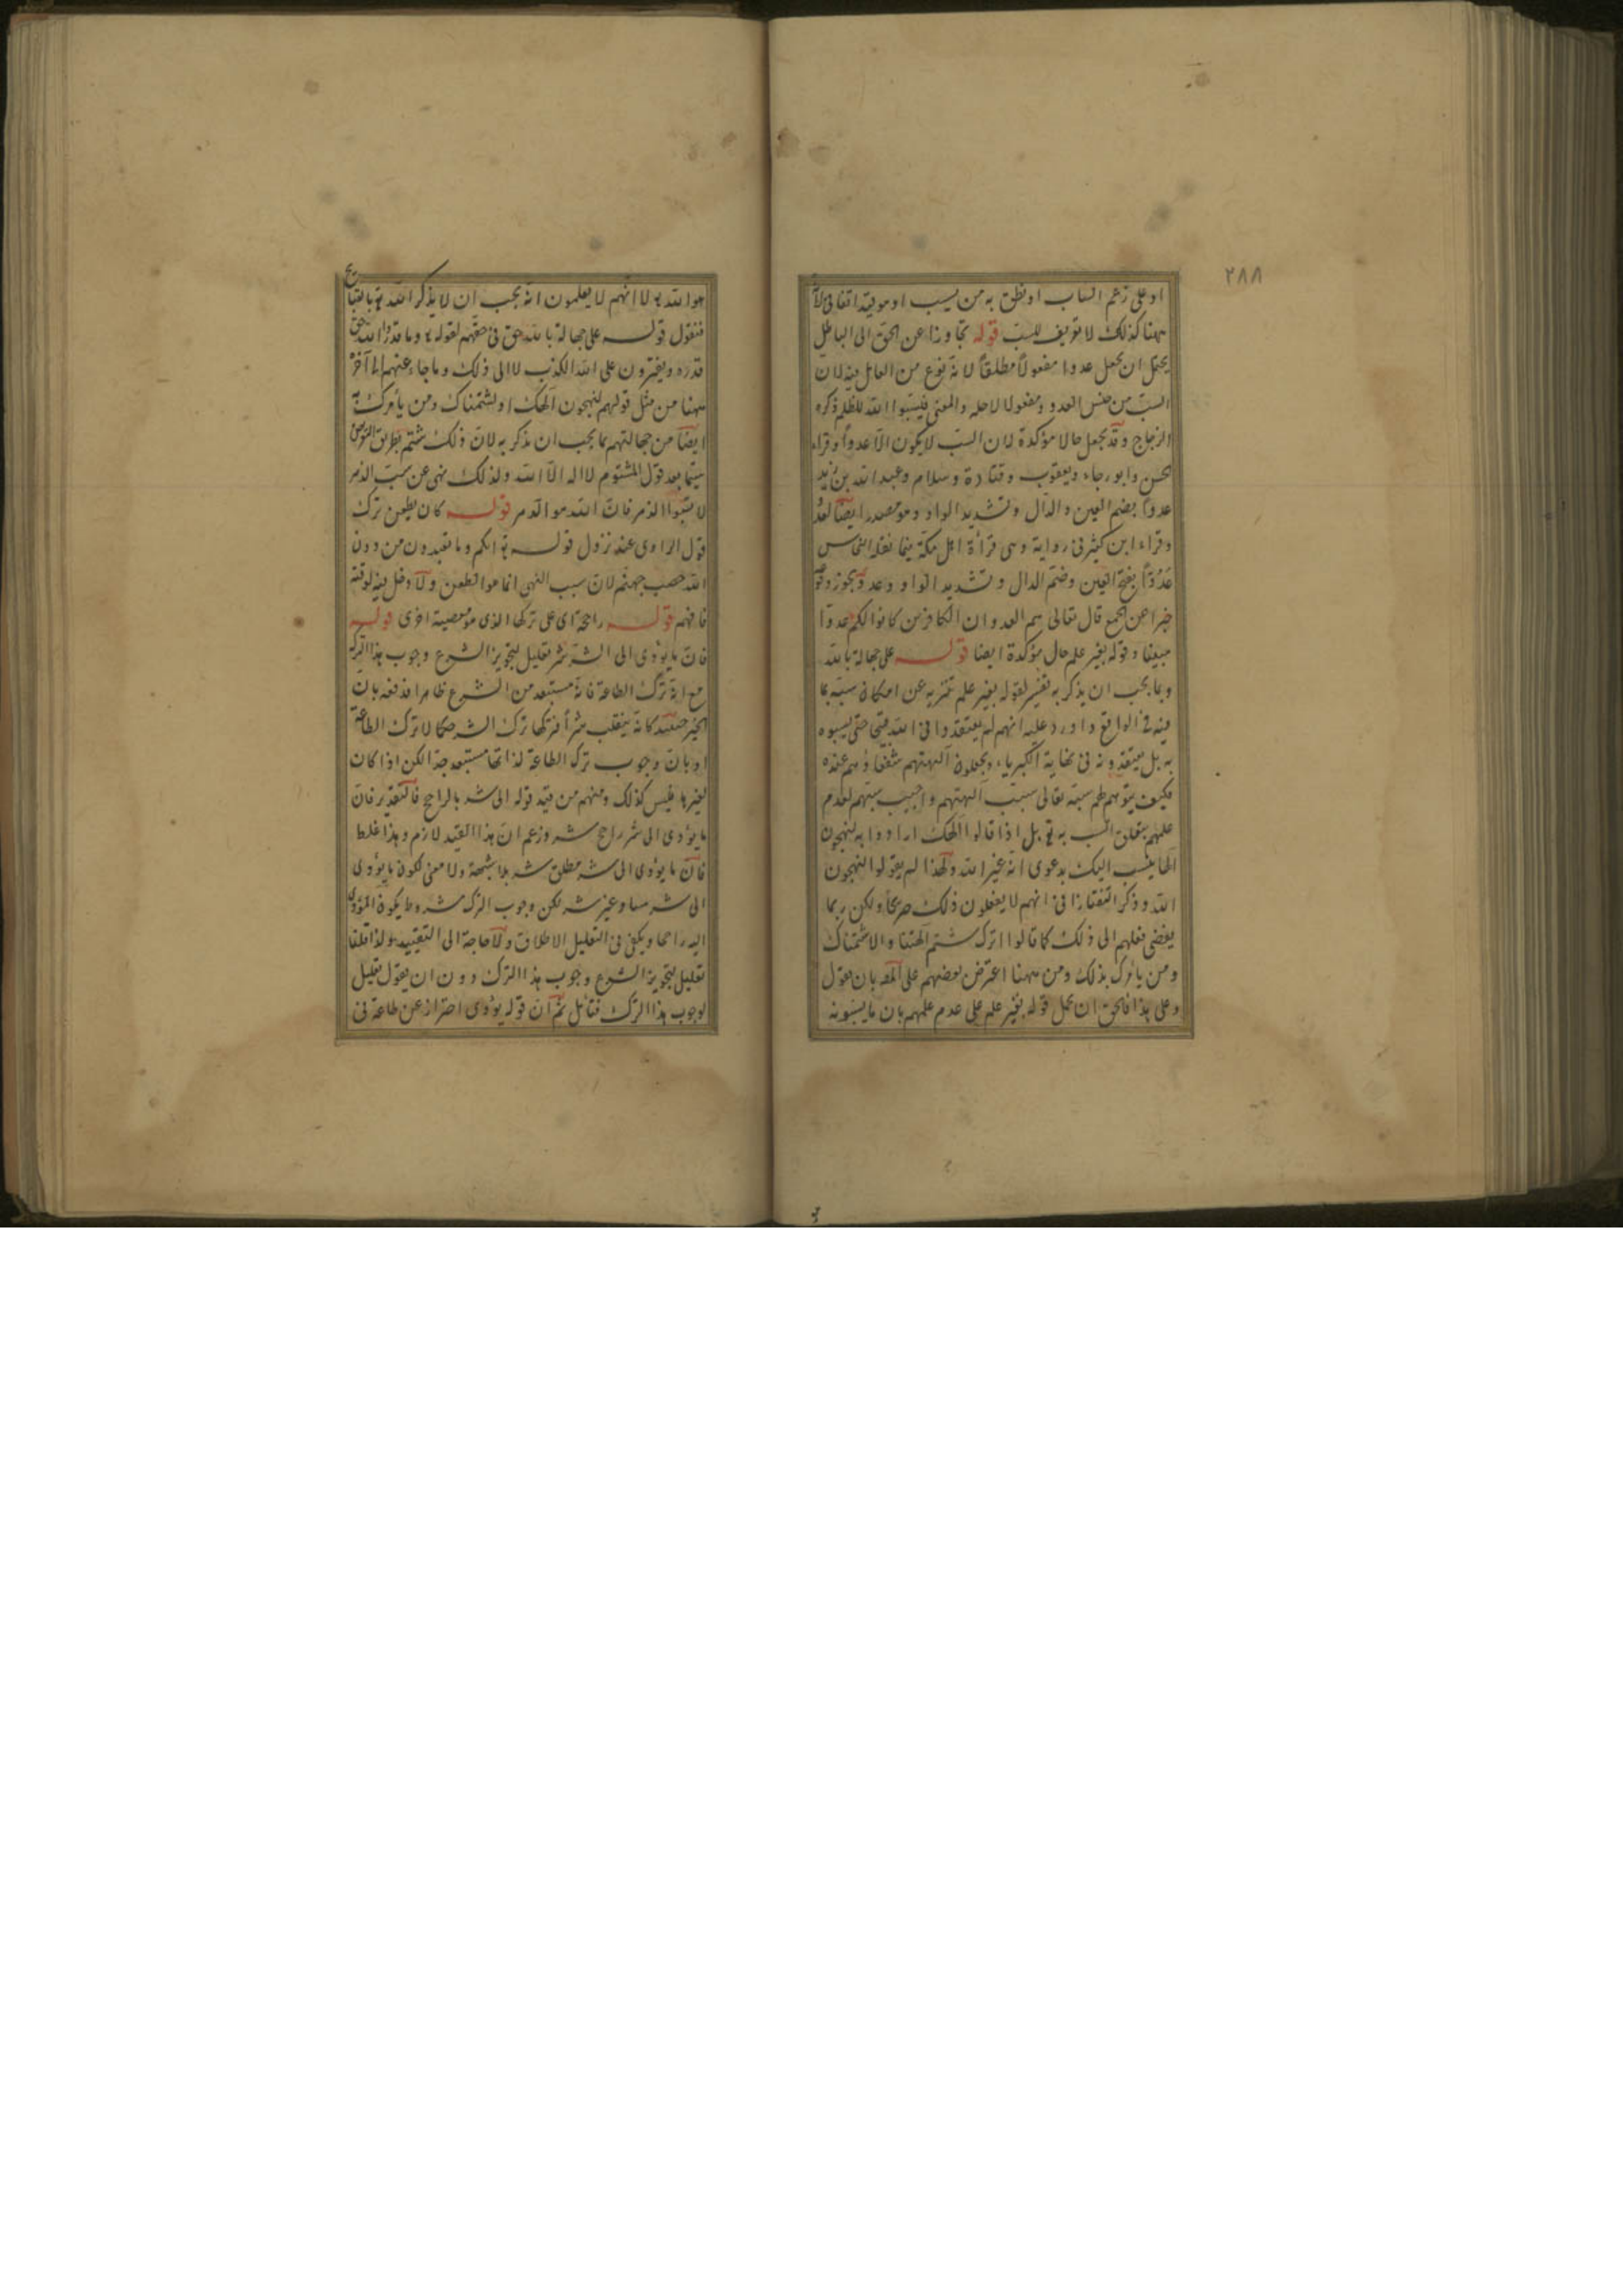 ٢٨٨
او على زعم الساب او نطق به من يسب او هو قيد اتفاقى لا
ههنا كذلك لا تعريف للسب قوله تجاوزا عن الحق الى الباطل
يحتمل ان يجعل عدوا مفعولا مطلقا لانه نوع من العامل فيه لان
السب من جنس العدو ومفعولا لاجله والمعنى فيسبوا الله للظلم ذكره
الزجاج وقد يجعل حالا مؤكدة لان السب لا يكون الا عدوا وقراء
الحسن وابو رجاء ويعقوب وقتادة وسلام وعبد الله بن زيد
عدوا بضم العين والدال وتشديد الواو وهو مصدر ايضا لعدا
وقراء ابن كثير فى رواية وهى قرأة اهل مكة فيما نقله النحاس
عَدُوّاً بفتح العين وضم الدال وتشديد الواو وعدو يجوز وقوعه
خبرا عن الجمع قال تعالى هم العدو ان الكافرين كانوا لكم عدوا
مبينا وقوله بغير علم حال مؤكدة ايضا قوله على جهالة بالله
وبما يجب ان يذكر به تفسير لقوله بغير علم تنزيه عن امكان سبه بما
فيه فى الواقع واورد عليه انهم لم يعتقدوا فى الله حتى يسبوه
به بل يعتقدونه فى نهاية الكبرياء ويجعلون آلهتهم شفعاؤهم عنده
فكيف يتوهم لهم سبه تعالى بسبب آلهتهم واجيب سبهم لعدم
علمهم بتعلق السب به تع بل اذا قالوا الهك ارادوا به لنهجون
الها ينسب اليك بدعوى انه غير الله ولهذا لم يقولوا لنهجون
الله وذكر التفتازانى انهم لا يفعلون ذلك صريحا ولكن ربما
يفضى فعلهم الى ذلك كما قالوا اترك شتم الهتنا والا شتمناك
ومن يأمرك بذلك ومن ههنا اعترض بعضهم على المص بان يقول
وعلى هذا فالحق ان يحمل قوله بغير علم على عدم علمهم بان ما يسبونه
هو الله تع لا انهم لا يعلمون انه يجب ان لا يذكر الله تع بالقبايح
فنقول قوله على جهالة بالله حق فى حقهم لقوله تع وما قدروا الله حق
قدره ويفترون على الله الكذب لا الى ذلك وما جاء عنهم الى آخره
ههنا من مثل قولهم لنهجون الهك او لشتمناك ومن يأمرك به
ايضا من جهالتهم بما يجب ان يذكر به لان ذلك شتم بطريق التعريض
سيما بعد قول المشتوم لا اله الا الله ولذلك نهى عن سب الدهر
لا تسبوا الدهر فان الله هو الدهر قوله كان يطعن ترك
قول الراوى عند نزول قوله تع انكم وما تعبدون من دون
الله حصب جهنم لان سبب النهى انما هو الطعن ولا دخل فيه لوقته
فافهم قوله راجحة اى على تركها الذى هو معصية اخرى قوله
فان ما يؤدى الى الشر شر تعليل لتجويز الشرع وجوب هذا الترك
مع انه ترك الطاعة فانه مستبعد من الشرع ظاهرا فدفعه بان
الخير حينئذ كانه ينقلب شرا فتركها ترك الشر حكما لا ترك الطاعة
او بان وجوب ترك الطاعة لذاتها مستبعد جدا لكن اذا كان
لغيرها فليس كذلك ومنهم من قيد قوله الى شر بالراجح فالتقدير فان
ما يؤدى الى شر راجح شر وزعم ان هذا القيد لازم وهذا غلط
فان ما يؤدى الى شر مطلق شر بلا شبهة ولا معنى لكون ما يؤدى
الى شر مساو غير شر لكن وجوب الترك مشروط بكون المؤدى
اليه راجحا ويكفى فى التعليل الاطلاق ولا حاجة الى التقييد ولذا قلنا
تعليل لتجويز الشرع وجوب هذا الترك دون ان يقول تعليل
لوجوب هذا الترك فتأمل ثم ان قوله يؤدى احتراز عن طاعة فى